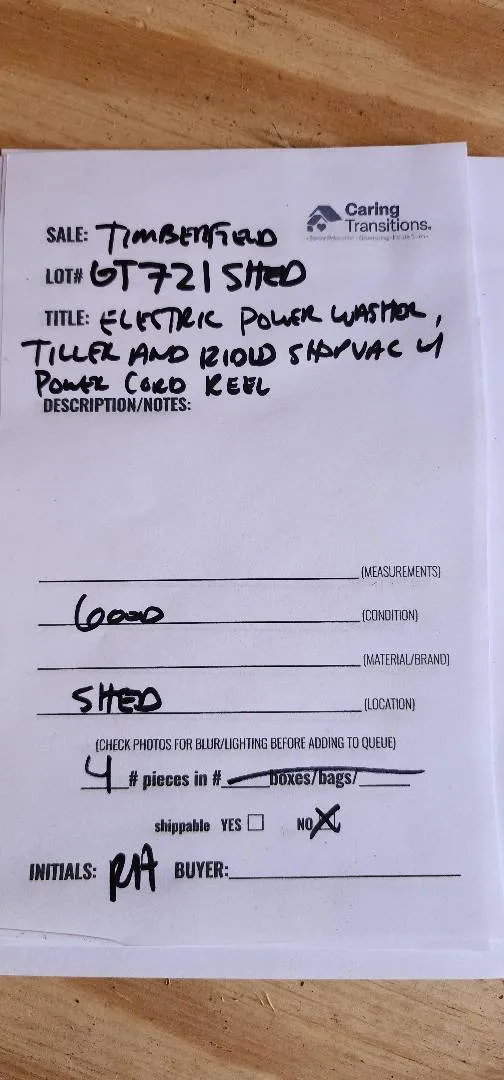 Caring
Transitions.
SALE: TIMBERFIELD
LOT# GT721 SHED
TITLE: ELECTRIC POWER WASHER,
TILLER AND SHOPVAC W
POWER CORD REEL
DESCRIPTION/NOTES:
(MEASUREMENTS)
GOOD (CONDITION)
(MATERIAL/BRAND)
SHED (LOCATION)
(CHECK PHOTOS FOR BLUR/LIGHTING BEFORE ADDING TO QUEUE)
4 # pieces in # boxes/bags/
shippable YES ☐ NO ☒
INITIALS: RA BUYER: